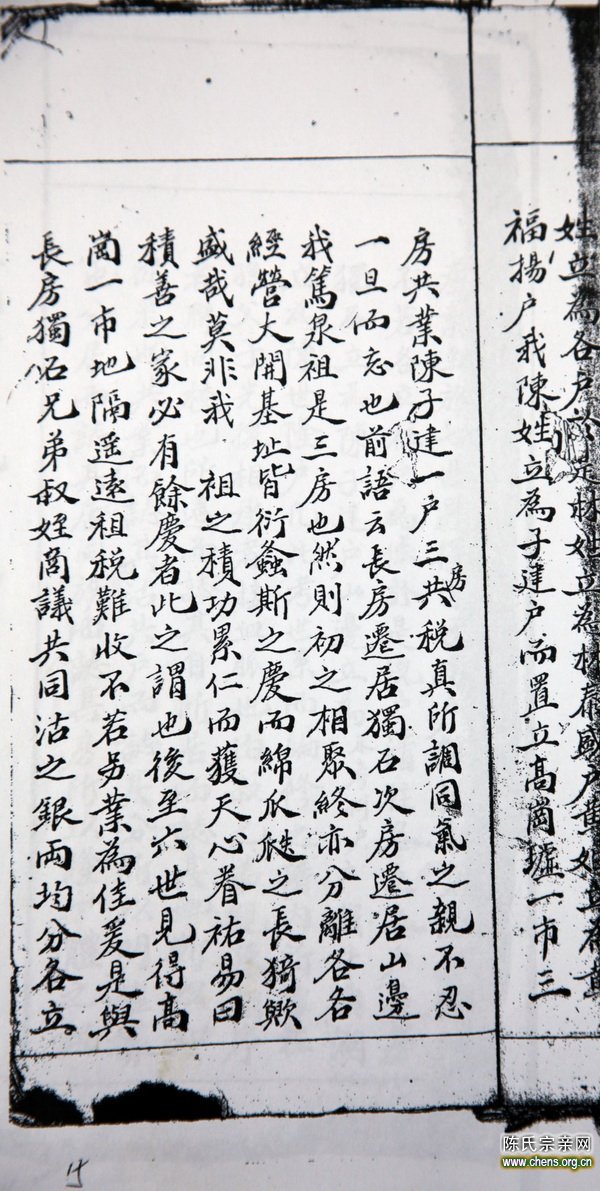 姓立為各户於是林姓立為林泰盛户黃姓立為黃
福揚户我陳姓立為子建户而置立高崗墟一市三
房共業陳子建一户三房共税真所謂同氣之親不忍
一旦而忘也前語云長房遷居獨石次房遷居山邊
我篤泉祖是三房也然則初之相聚終亦分離各各
經營大開基址皆衍螽斯之慶而綿瓜瓞之長猗歟
盛哉莫非我 祖之積功累仁而獲天心眷祐易曰
積善之家必有餘慶者此之謂也後至六世見得高
崗一市地隔遥遠祖税難收不若另業為佳爰是與
長房獨石兄弟叔姪商議共同沽之銀両均分各立
15
陈氏宗亲网
www.chens.org.cn